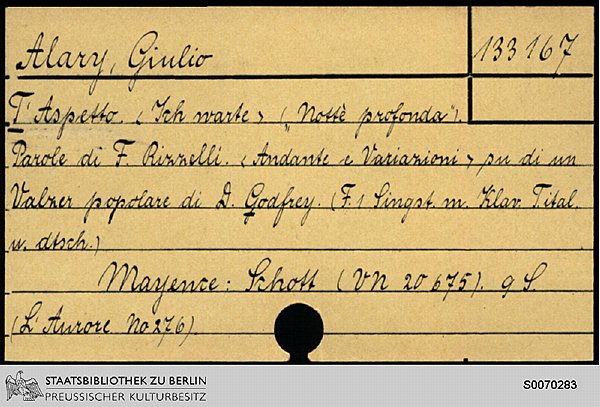 Alary, Giulio
133167
T'Aspetto. < Ich warte > („Nottè profonda").
Parole di F. Rizzelli. < Andante e Variazioni > su di un
Valzer popolare di D. Godfrey. (F. 1 Singst. m. Klav. Tital.
u. dtsch.)
Mayence: Schott (VN 20675). 9 S.
(L'Aurore No 276).
STAATSBIBLIOTHEK ZU BERLIN
PREUSSISCHER KULTURBESITZ
S0070283